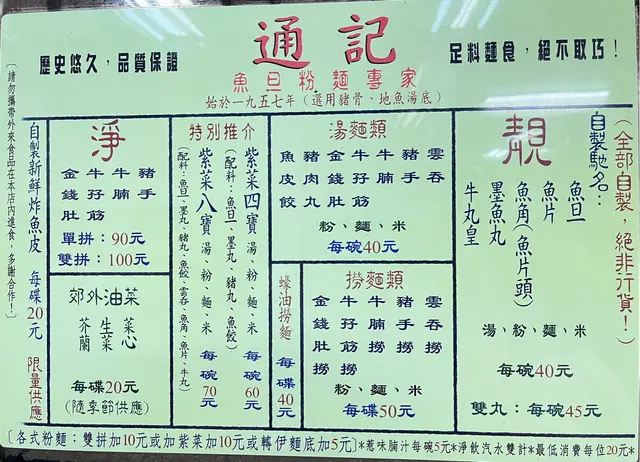 歷史悠久，品質保證
通記
足料麵食，絕不取巧！
魚旦粉麵專家
始於一九五七年（選用豬骨、地魚湯底）
（全部自製，絕非行貨！）
自製馳名：
靚
魚旦
魚片
魚角（魚片頭）
墨魚丸
牛丸皇
湯、粉、麵、米
每碗40元
雙丸：每碗45元
湯麵類
雲吞
豬手
牛腩
牛孖筋
金錢肚
豬肉丸
魚皮餃
粉、麵、米
每碗40元
撈麵類
雲吞撈
豬手撈
牛腩撈
牛孖筋撈
金錢肚撈
粉、麵、米
每碟50元
蠔油撈麵
每碟40元
特別推介
紫菜四寶湯、粉、麵、米
每碗60元
（配料：魚旦、墨丸、豬丸、魚餃）
紫菜八寶湯、粉、麵、米
每碗70元
（配料：魚旦、墨丸、豬丸、魚餃、雲吞、魚角、魚片、牛丸）
淨
豬手
牛腩
牛孖筋
金錢肚
單拼：90元
雙拼：100元
郊外油菜
菜心
生菜
芥蘭
每碟20元
（隨季節供應）
自製新鮮炸魚皮 每碟20元 限量供應
〔請勿攜帶外來食品在本店內進食，多謝合作！〕
〔各式粉麵：雙拼加10元或加紫菜加10元或轉伊麵底加5元〕*惹味腩汁每碗5元*淨飲汽水雙計*最低消費每位20元*